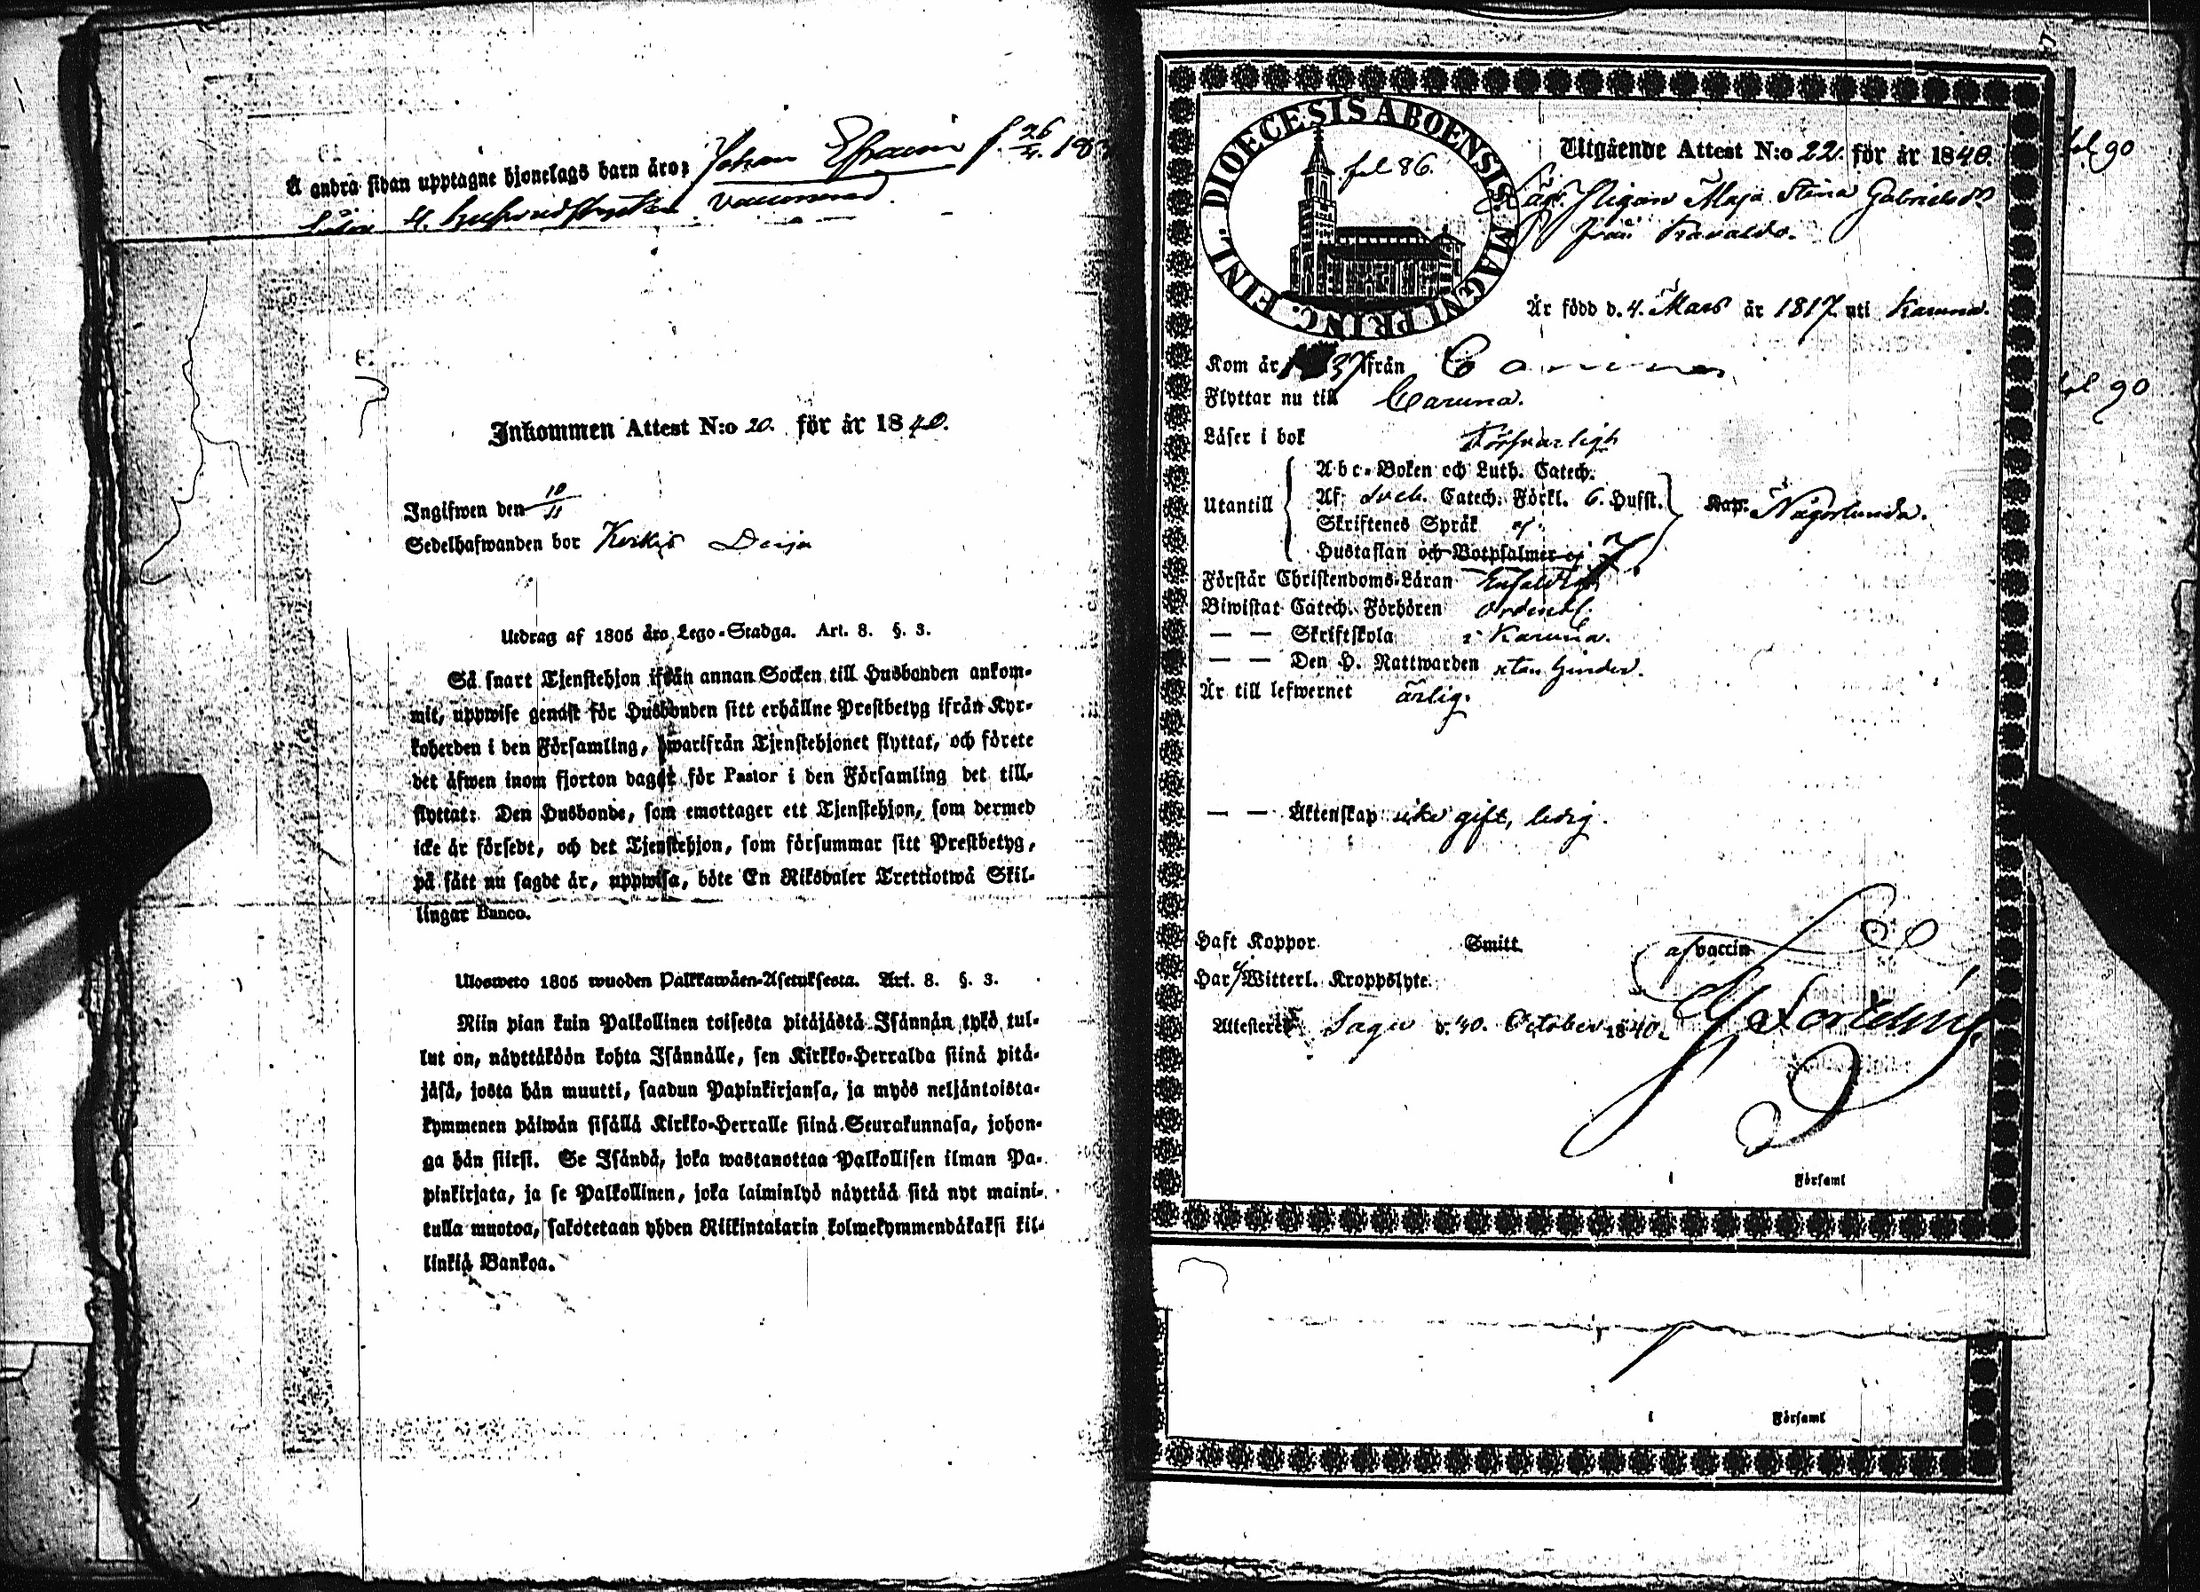 Å andra sidan upptagne hjonelags barn äro: Johan Efraim f. 26/4. 18
4.
Inkommen Attest N:o 20. för år 1840.
Ingifwen den 10/11
Sedelhafwanden bor
Utdrag af 1805 års Lego-Stadga. Art. 8. §. 3.
Så snart Tjenstehjon ifrån annan Socken till Husbonden ankom-
mit, uppwise genast för Husbonden sitt erhållne Prestbetyg ifrån Kyr-
koherden i den Församling, hwarifrån Tjenstehjonet flyttat, och förete
det äfwen inom fjorton dagar för Pastor i den Församling det till-
flyttat: Den Husbonde, som emottager ett Tjenstehjon, som dermed
icke är försedt, och det Tjenstehjon, som försummar sitt Prestbetyg,
på sätt nu sagdt är, uppwisa, böte En Riksdaler Trettiotwå Skil-
lingar Banco.
Ulosweto 1805 wuoden Palkkawäen-Asetuksesta. Art. 8. §. 3.
Niin pian kuin Palkollinen toisesta pitäjästä Isännän tykö tul-
lut on, näyttäköön kohta Isännälle, sen Kirkko-Herralda siinä pitä-
jäsä, josta hän muutti, saadun Papinkirjansa, ja myös neljäntoista-
kymmenen päiwän sisällä Kirkko-Herralle siinä Seurakunnasa, johon-
ga hän siirsi. Se Isändä, joka wastanottaa Palkollisen ilman Pa-
pinkirjata, ja se Palkollinen, joka laiminlyö näyttää sitä nyt maini-
tulla muotoa, sakotetaan yhden Riikintalarin kolmekymmendäkaksi kil-
linkiä Bankoa.
DIOECESIS ABOENSIS MAGNI PRINC. FINL.
fol 86.
Utgående Attest N:o 22. för år 1840.
Pigan Maja Stina Gabrielsdr
från
Är född d. 4. Mars år 1817 uti Karuna.
Kom år 1837 ifrån
Flyttar nu till Caruna.
Läser i bok Försvarligt
Utantill
Abc-Boken och Luth. Catech.
Af Sveb. Catech. Förkl. 6. Hufst.
Skriftenes Språk ej
Hustaflan och Botpsalmer ej
Kap. Någorlunda.
Förstår Christendoms-Läran Enfaldigt
Biwistat Catech. Förhören ordentl.
— — Skriftskola i Karuna.
— — Den H. Nattwarden utan hinder.
Är till lefwernet ärlig.
— — Äktenskap icke gift, ledig.
Haft Koppor Smitt. af vaccin
Har ej Witterl. Kroppslyte.
Attesterer Sagu d. 10. October 1840.
i Församl
i Församl
fol 90
fol 90